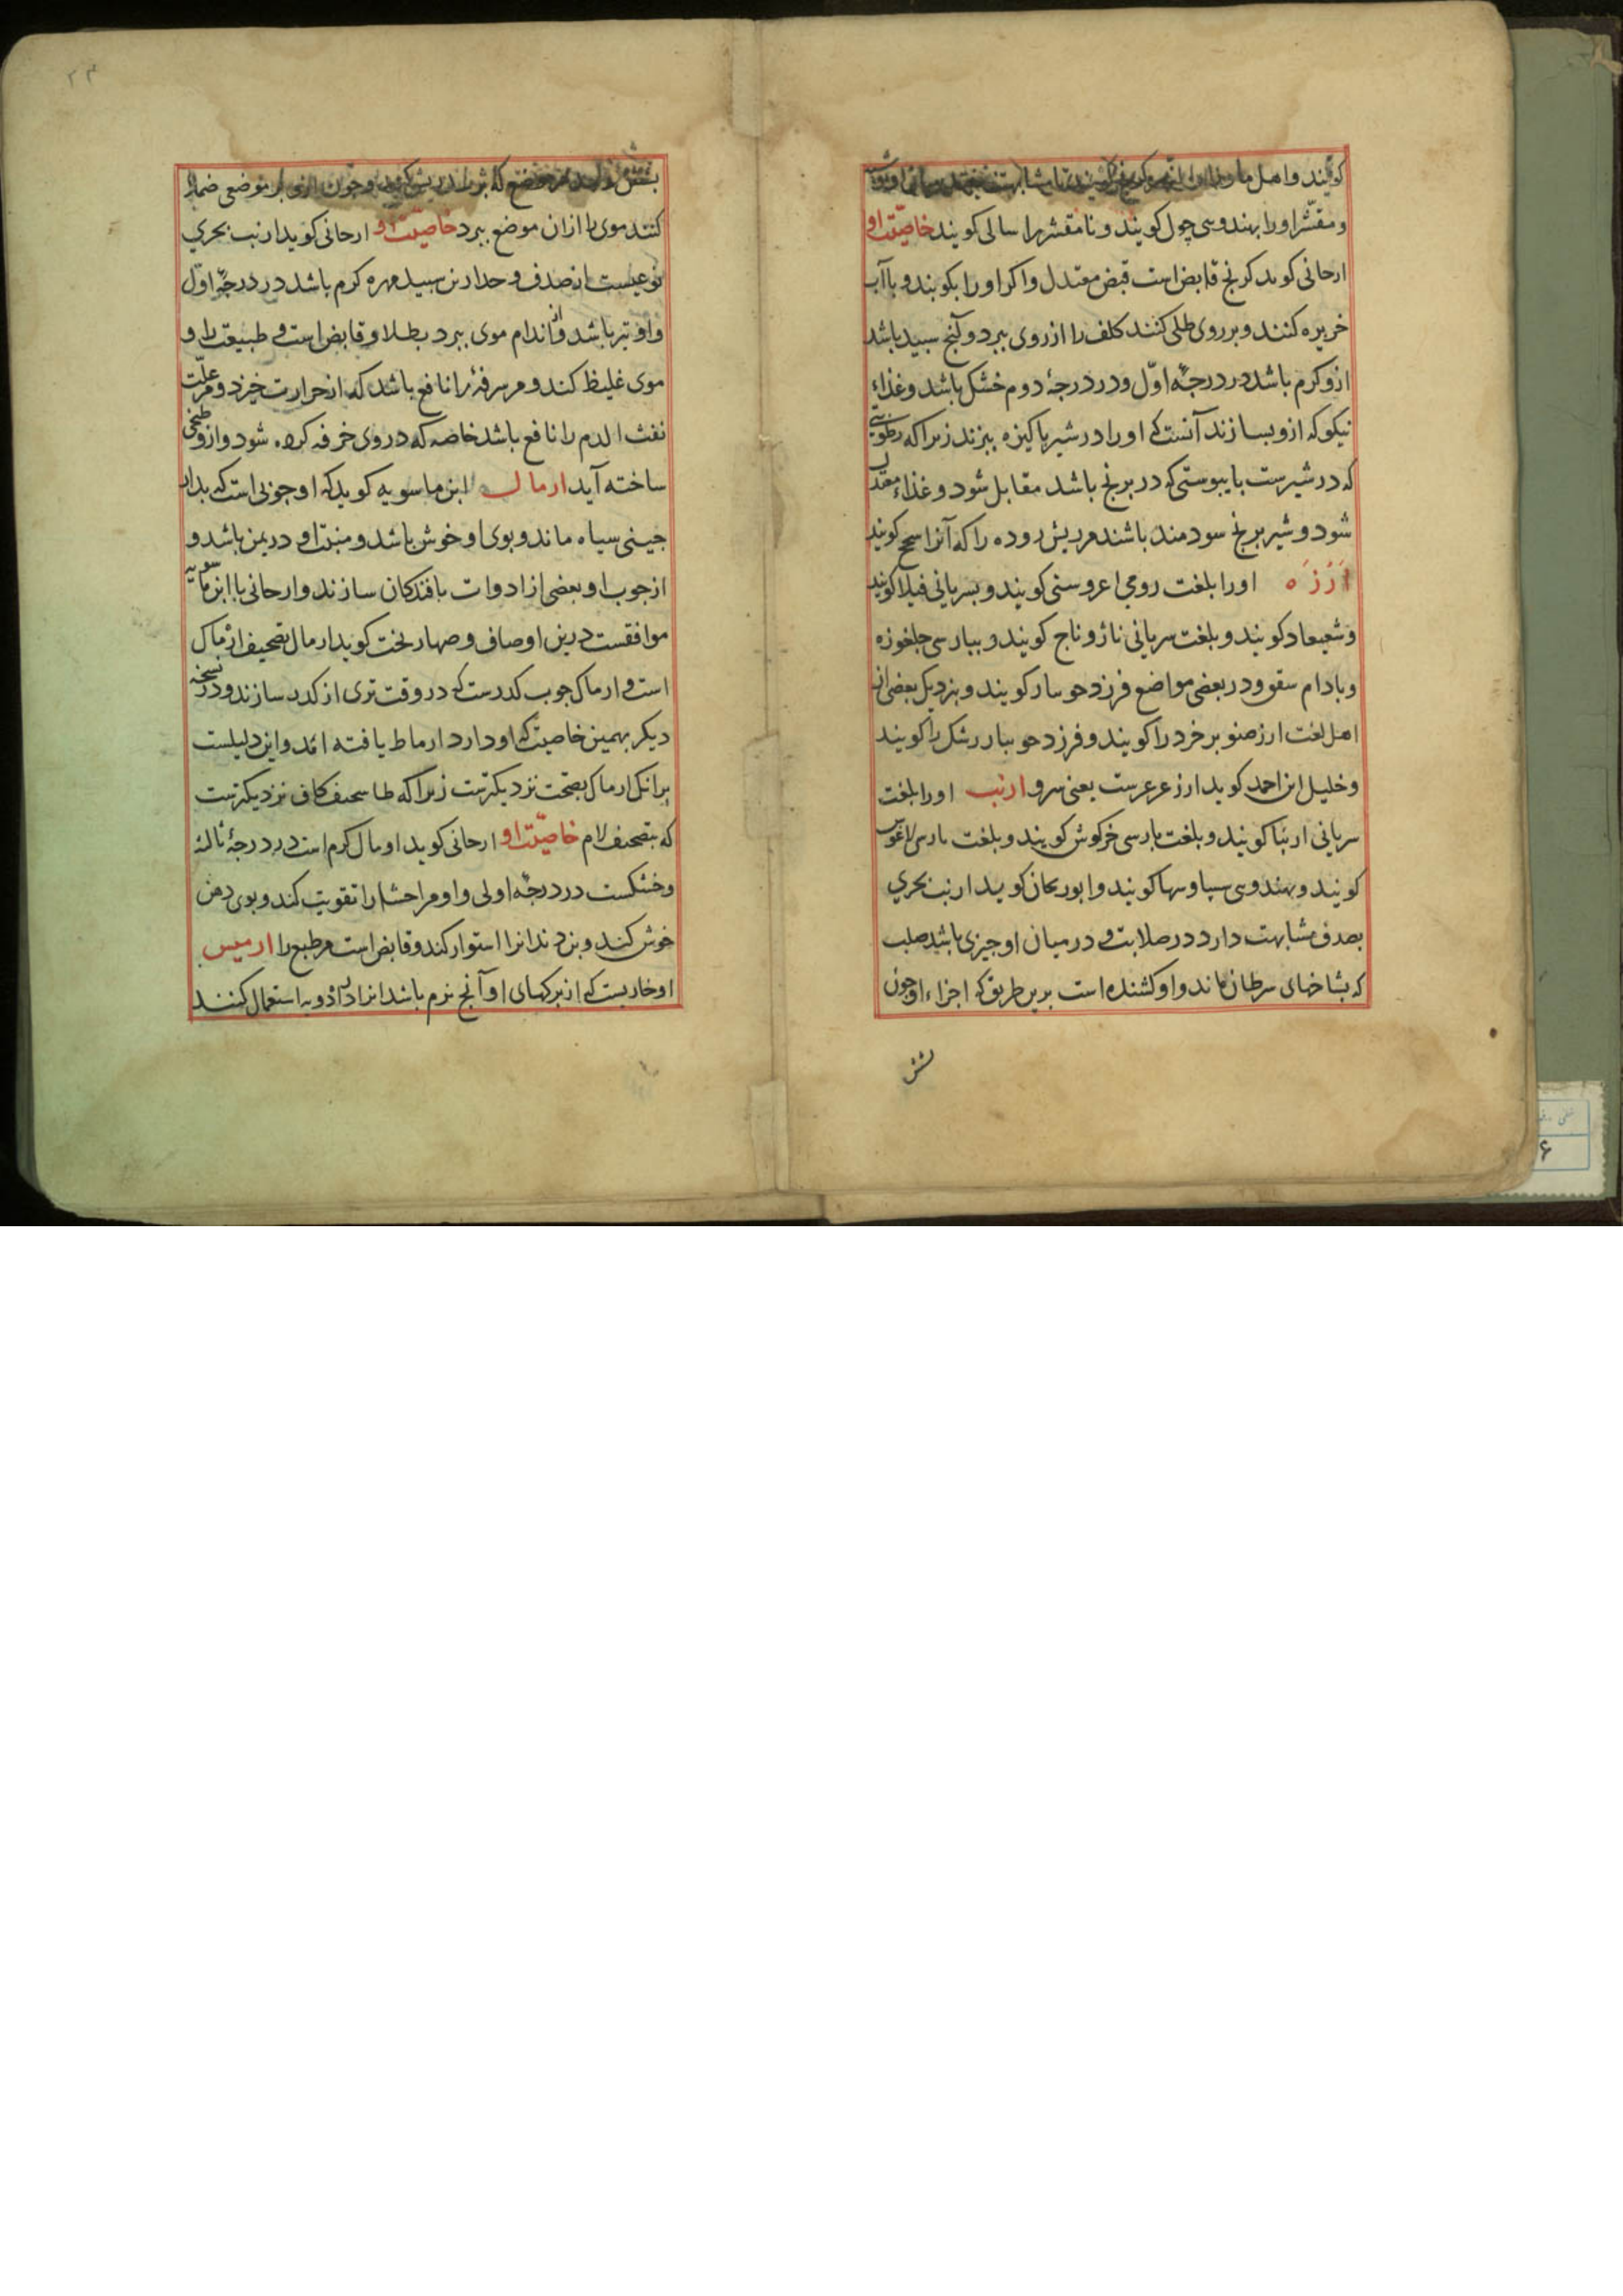 کویند و اهل ماورا
و مقشر او را بهندوی چول کویند و نامقشر را سالی کویند خاصیت او
ارحانی کوید کرنج قابض است قبض معتدل و اکر او را بکوبند و با آب
خریره کنند و بر روی طلی کنند کلف را از روی ببرد و آنچ سپید باشد
ازو کرم باشد در درجهٔ اوّل و در درجهٔ دوم خشک باشد و غذاء
نیکو که ازو بسازند آنست که او را در شیر پاکیزه بپزند زیرا که رطوبتی
که در شیرست با یبوستی که در برنج باشد مقابل شود و غذاء معتدل
شود و شیر برنج سودمند باشد مر ریش روده را که آنرا سحج کویند
اَرَزَه او را بلغت رومی اعروسنی کویند و بسریانی فیلا کویند
و شیعاد کویند و بلغت سریانی ناژو ناج کویند و بپارسی جلغوزه
و بادام سقو و در بعضی مواضع فرزد حوسار کویند و بنزدیک بعضی از
اهل لغت ارز صنوبر خرد را کویند و فرزد حو ببار رشک را کویند
و خلیل ابن احمد کوید ارز عرعرست یعنی سرو ارنب او را بلغت
سریانی ارنبا کویند و بلغت پارسی خرکوش کویند و بلغت پارسی لاغوس
کویند و بهندوی سپاو سها کویند و ابوریحان کوید ارنب بحری
بصدف مشابهت دارد در صلابت و در میان او چیزی باشد صلب
که بشاخهای سرطان ماند و او کشنده است برین طریق که اجزاء او چون
شش
۲۳
شش که بر موضعی ضماد
کنند موی را از ان موضع ببرد خاصیت او ارحانی کوید ارنب بحری
نوعیست از صدف و حدارین سپید مهره کرم باشد در درجهٔ اوّل
و او تیز باشد و از اندام موی ببرد بطلا و قابض است و طبیعت را و
موی غلیظ کند و مر سرفهٔ را نافع باشد که از حرارت خیزد و مر علّت
نفث الدم را نافع باشد خاصه که در وی خرفه کرده شود و ازو طبخی
ساخته آید ارمال ابن ماسویه کوید که او چوبی است که بدار
چینی سیاه ماند و بوی او خوش باشد و منبت او در یمن باشد و
از چوب او بعضی از ادوات بافندکان سازند و ارحانی با ابن ماسویه
موافقست درین اوصاف و صهار بخت کوید ارمال تصحیف ارماک
است و ارماک چوب کدرست که در وقت تری از کدر سازند و در نسخه
دیکر بهمین خاصیت که او دارد ارماط یافته اند و این دلیلست
برانک ارماک بصحت نزدیکترست زیرا که طا تصحیف کاف نزدیکترست
که بتصحیف لام خاصیّت او ارحانی کوید اومال کرم است در درجهٔ ثالثه
و خشکست در درجهٔ اولی و او مر احشا را تقویت کند و بوی دهن
خوش کند و بن دندانرا استوار کند و قابض است مر طبع را ارمیس
او خاریست که از برکهای او آنچ نرم باشد انرا در ادویه استعمال کنند